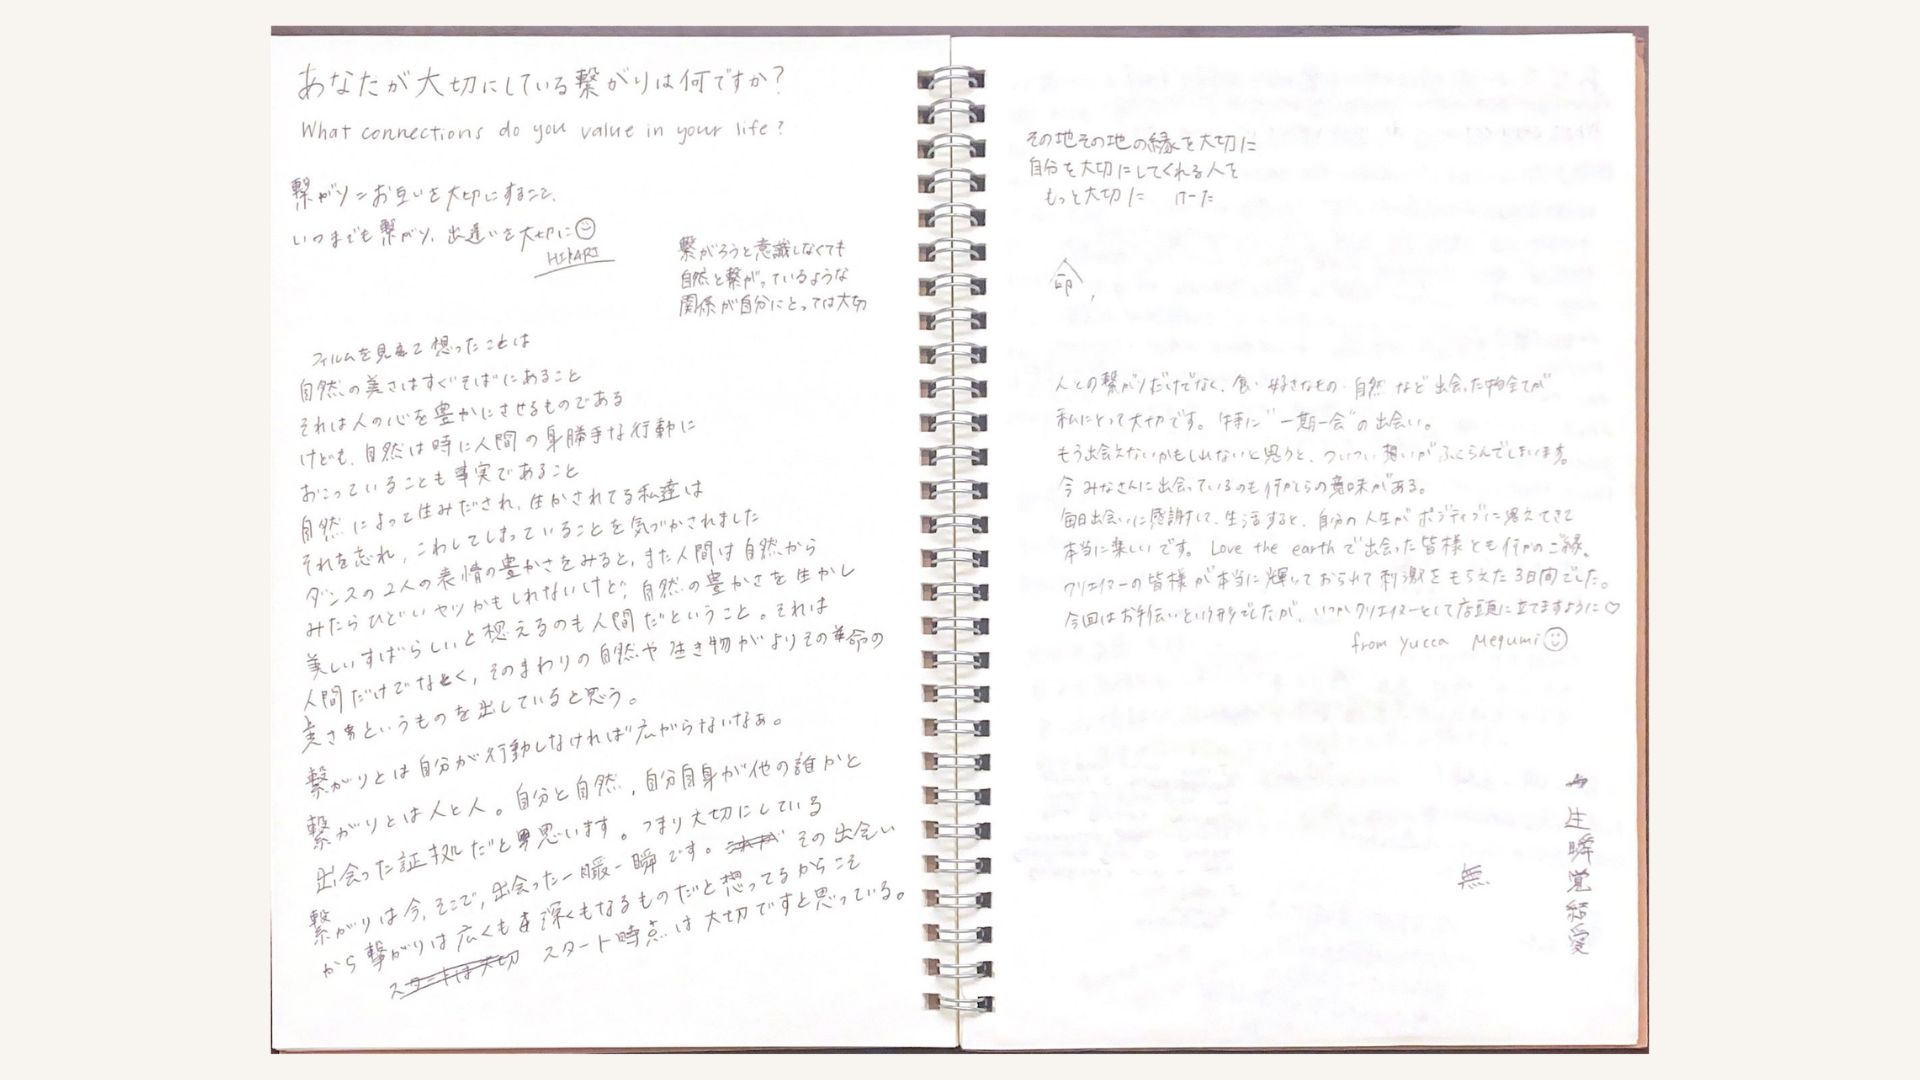 あなたが大切にしている繋がりは何ですか?
What connections do you value in your life?
繋がり=お互いを大切にすること、
いつまでも繋がり、出逢いを大切に
HIKARI
繋がろうと意識しなくても
自然と繋がっているような
関係が自分にとっては大切
フィルムを見て想ったことは
自然の美さはすぐそばにあること
それは人の心を豊かにさせるものである
けども、自然は時に人間の身勝手な行動に
おこっていることも事実であること
自然によって生みだされ、生かされてる私達は
それを忘れ、こわしてしまっていることを気づかされました
ダンスの2人の表情の豊かさをみると、また人間は自然から
みたらひどいヤツかもしれないけど、自然の豊かさを生かし
美しいすばらしいと想えるのも人間だということ。それは
人間だけでなく、そのまわりの自然や生き物がよりその革命の
美さというものを出していると思う。
繋がりとは自分が行動しなければ広がらないなぁ。
繋がりとは人と人。自分と自然、自分自身が他の誰かと
出会った証拠だと思います。つまり大切にしている
繋がりは今、そこで、出会った一瞬一瞬です。その出会い
から繋がりは広くも深くもなるものだと想ってるからこそ
スタートは大切 スタート時点は大切ですと思っている。
その地その地の縁を大切に
自分を大切にしてくれる人を
もっと大切に けーた
命、
人との繋がりだけでなく、食・好きなもの・自然など出会った物全てが
私にとって大切です。特に"一期一会"の出会い。
もう出会えないかもしれないと思うと、ついつい想いがふくらんでしまいます。
今みなさんに出会っているのも何かしらの意味がある。
毎日出会いに感謝して、生活すると、自分の人生がポジティブに思えてきて
本当に楽しいです。Love the earthで出会った皆様とも何かのご縁。
クリエイターの皆様が本当に輝いておられて刺激をもらえた3日間でした。
今回はお手伝いという形でしたが、いつかクリエイターとして店頭に立てますように♡
from yucca Megumi
生瞬覚結愛
無